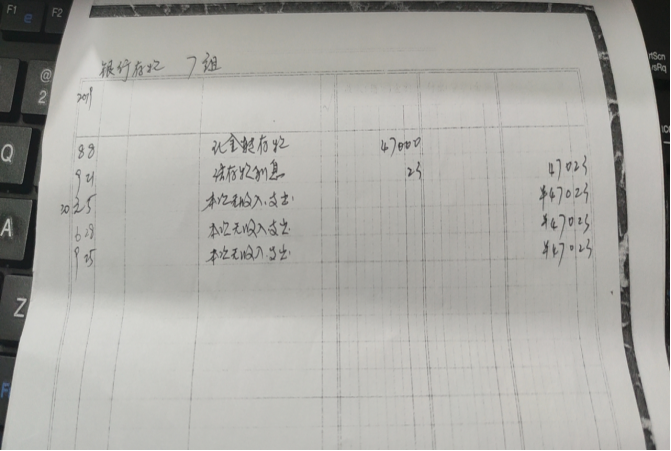 F1
F2
@
2
Q
A
Z
银行存款 7组
2019
8 8 现金转存款 47000
9 21 结存款利息 23 47023
30 3 25 本次无收入.支出. ¥47023
6 28 本次无收入支出. ¥47023
9 25 本次无收入.支出. ¥47023